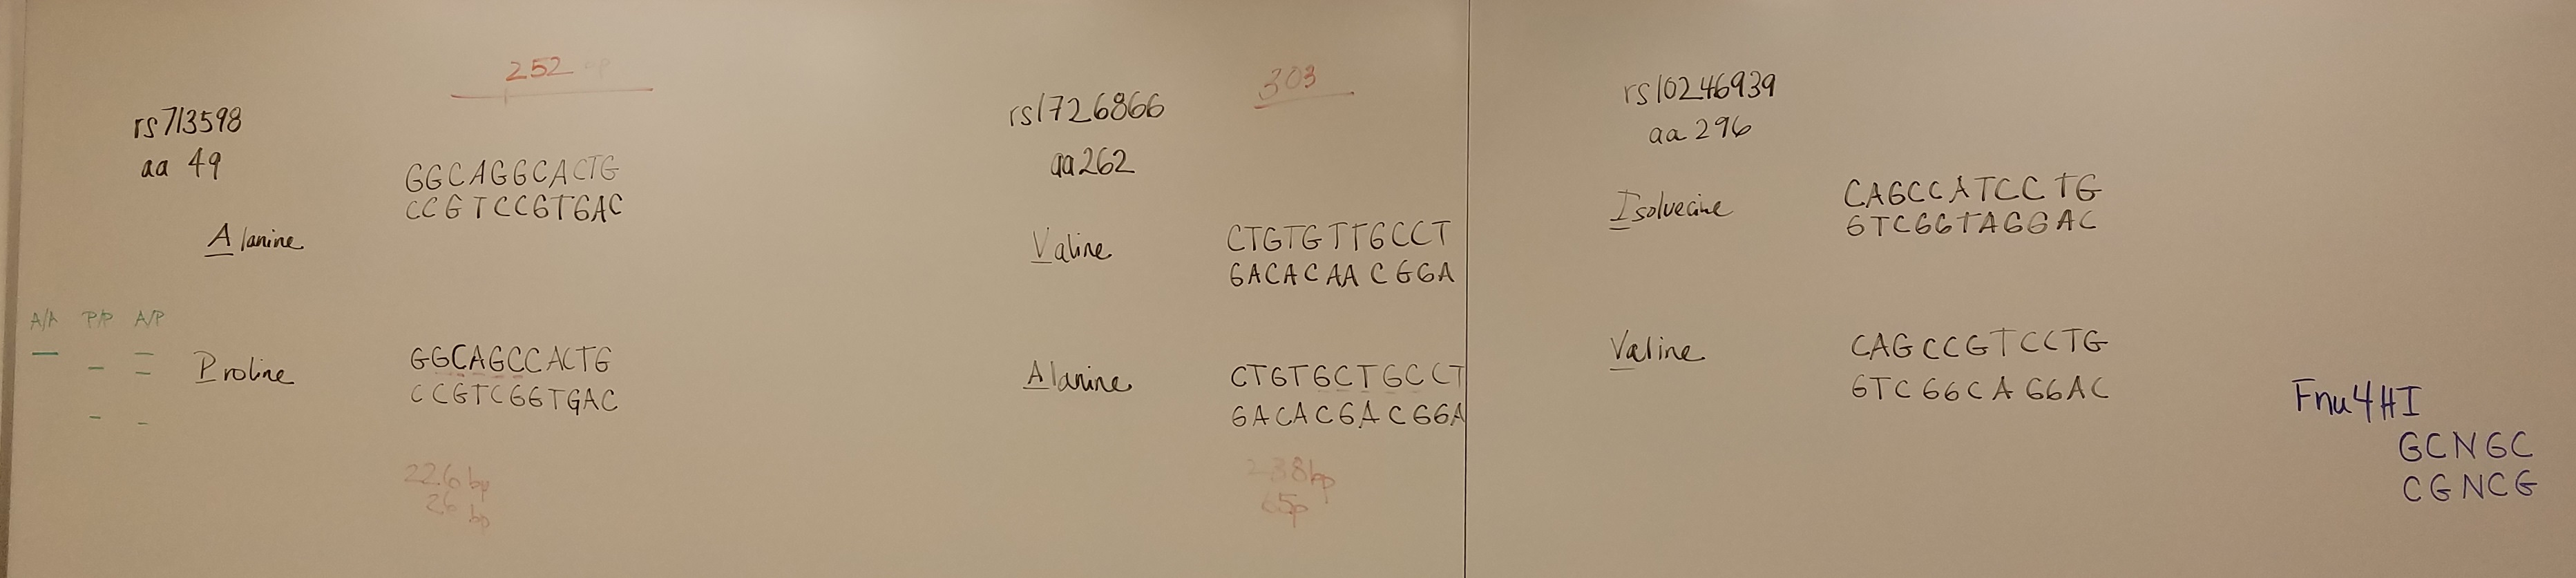 252 bp
rs713598
aa 49
GGCAGGCACTG
CCGTCCGTGAC
Alanine
A/A P/P A/P
Proline
GGCAGCCACTG
CCGTCGGTGAC
226 bp
26 bp
303
rs1726866
aa262
Valine
CTGTGTTGCCT
GACACAACGGA
Alanine
CTGTGCTGCCT
GACACGACGGA
238bp
65p
rs10246939
aa 296
Isoluecine
CAGCCATCCTG
GTCGGTAGGAC
Valine
CAGCCGTCCTG
GTCGGCAGGAC
Fnu4HI
GCNGC
CGNCG